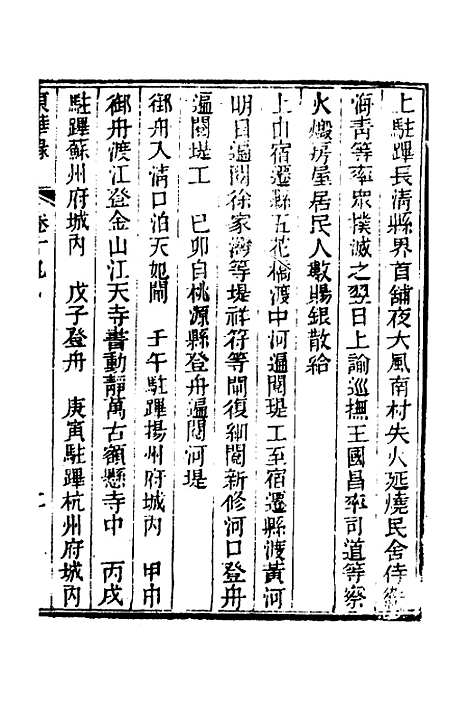 上駐蹕長淸縣界首舖夜大風南村失火延燒民舍侍衞
海靑等率眾撲滅之翌日上諭巡撫王國昌率司道等察
火燬房屋居民人數賜銀散給
上由宿遷縣五花橋渡中河遍閱堤工至宿遷縣渡黃河
明日遍閱徐家灣等堤祥符等閘復細閱新修河口登舟
遍閱堤工　己卯自桃源縣登舟遍閱河堤
御舟入淸口泊天妃閘　壬午駐蹕揚州府城內　甲申
御舟渡江登金山江天寺書動靜萬古額懸寺中　丙戌
駐蹕蘇州府城內　戊子登舟　庚寅駐蹕杭州府城內
東華錄